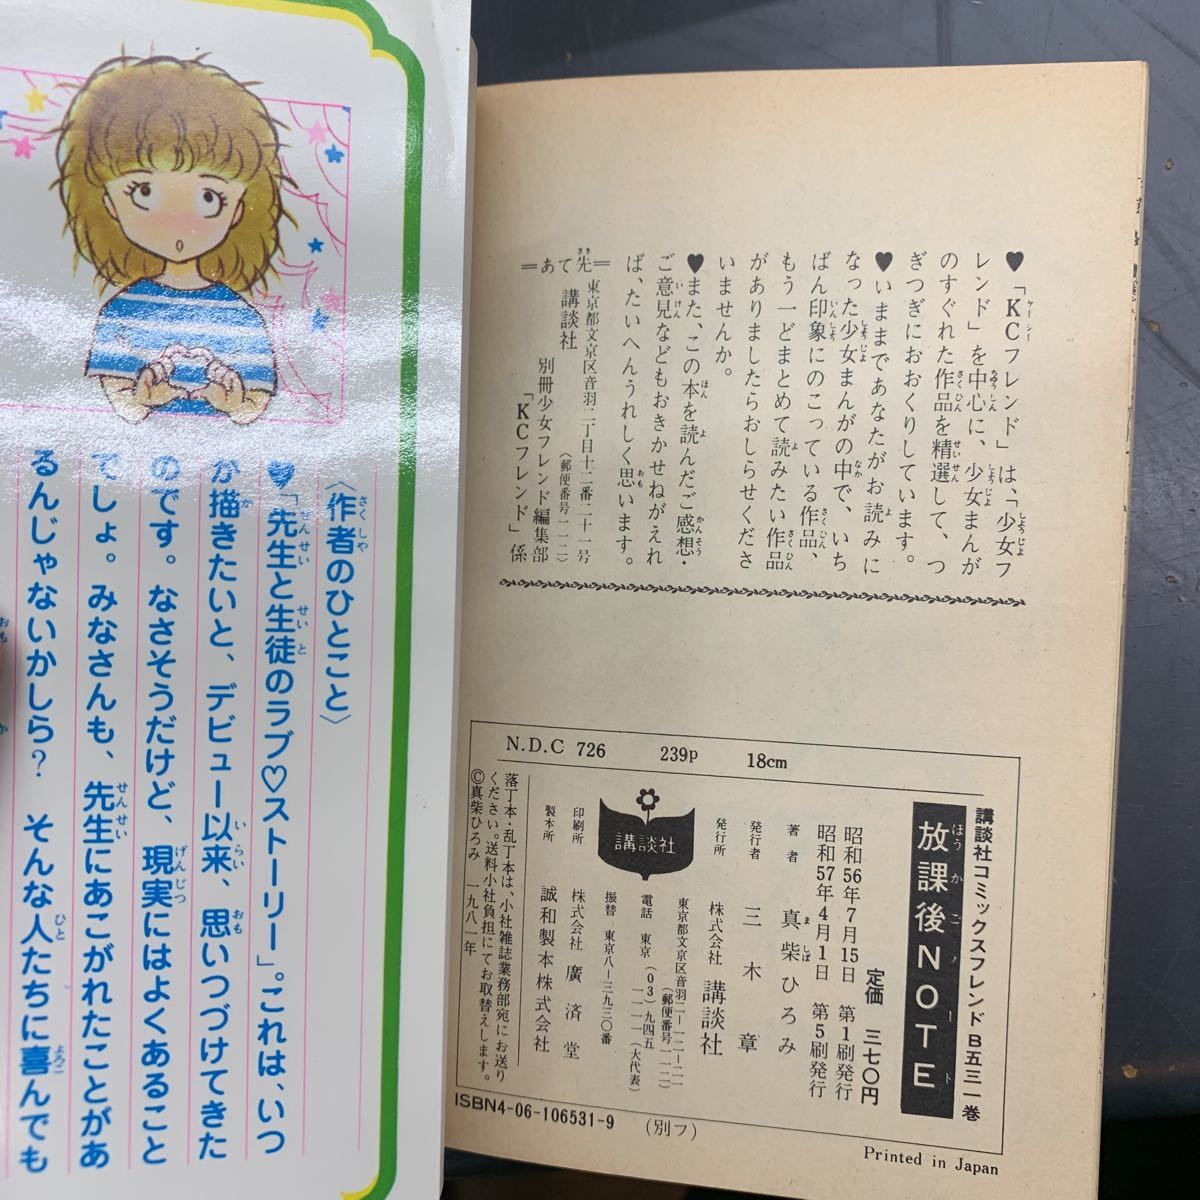 ♥「KCフレンド」は、「少女フ
レンド」を中心に、少女まんが
のすぐれた作品を精選して、つ
ぎつぎにおおくりしています。
♥いままであなたがお読みに
なった少女まんがの中で、いち
ばん印象にのこっている作品、
もう一どまとめて読みたい作品
がありましたらおしらせくださ
いませんか。
♥また、この本を読んだご感想・
ご意見などもおきかせねがえれ
ば、たいへんうれしく思います。
=あて先=
東京都文京区音羽二丁目十二番二十一号
(郵便番号一一二)
講談社 別冊少女フレンド編集部
「KCフレンド」係
N.D.C 726 239p 18cm
講談社コミックスフレンドB五三一巻
放課後NOTE
ほうかごノート
定価 三七〇円
昭和56年7月15日 第1刷発行
昭和57年4月1日 第5刷発行
著者 真柴ひろみ
発行者 三木章
発行所 株式会社 講談社
東京都文京区音羽二-一二-二一
(郵便番号一一二)
電話 東京(03)九四五
一一一一(大代表)
振替 東京八-三九三〇番
講談社
印刷所 株式会社 廣済堂
製本所 誠和製本株式会社
落丁本・乱丁本は、小社雑誌業務部宛にお送り
ください。送料小社負担にてお取替えします。
©真柴ひろみ 一九八一年
ISBN4-06-106531-9 (別フ)
Printed in Japan
〈作者のひとこと〉
♥「先生と生徒のラブ♡ストーリー」。これは、いつ
か描きたいと、デビュー以来、思いつづけてきた
のです。なさそうだけど、現実にはよくあること
でしょ。みなさんも、先生にあこがれたことがあ
るんじゃないかしら? そんな人たちに喜んでも